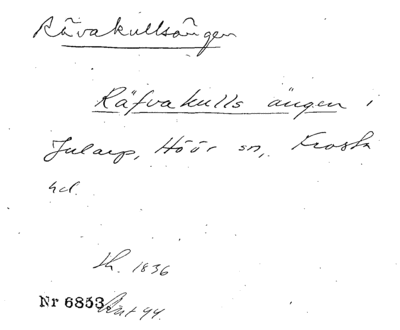 Rävakullsängen
Räfvakulls ängen i
Jularp, Höör sn, Frosta
hd.
Sk. 1836
Nr 6853 Akt 44.